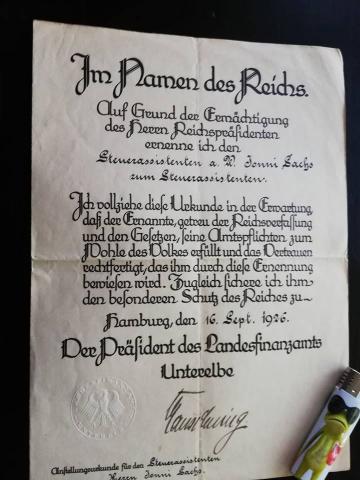 Im Namen des Reichs.
Auf Grund der Ermächtigung
des Herrn Reichspräsidenten
ernenne ich den
Steuerassistenten a. W. Jonni Sachs
zum Steuerassistenten.
Ich vollziehe diese Urkunde in der Erwartung,
daß der Ernannte, getreu der Reichsverfassung
und den Gesetzen, seine Amtspflichten zum
Wohle des Volkes erfüllt und das Vertrauen
rechtfertigt, das ihm durch diese Ernennung
bewiesen wird. Zugleich sichere ich ihm
den besonderen Schutz des Reiches zu–
Hamburg, den 16. Sept. 1926.
Der Präsident des Landesfinanzamts
Unterelbe
Anstellungsurkunde für den Steuerassistenten
Herrn Jonni Sachs.